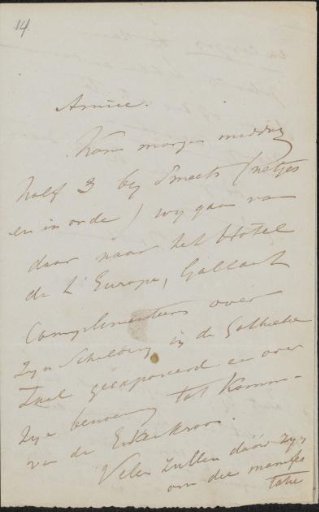 14
Amice.
Kom morgen middag
half 3 bij Smeets (netjes
en in orde) wij gaan van
daar naar het Hotel
de L'Europe, Gallait
Complimenteren over
zijn Schilderij in de Gothieke
Zaal geexposeerd en over
zijn benoeming tot Komm-
van de Eikekroon.
Velen zullen daar zijn
om die manifes
tatie